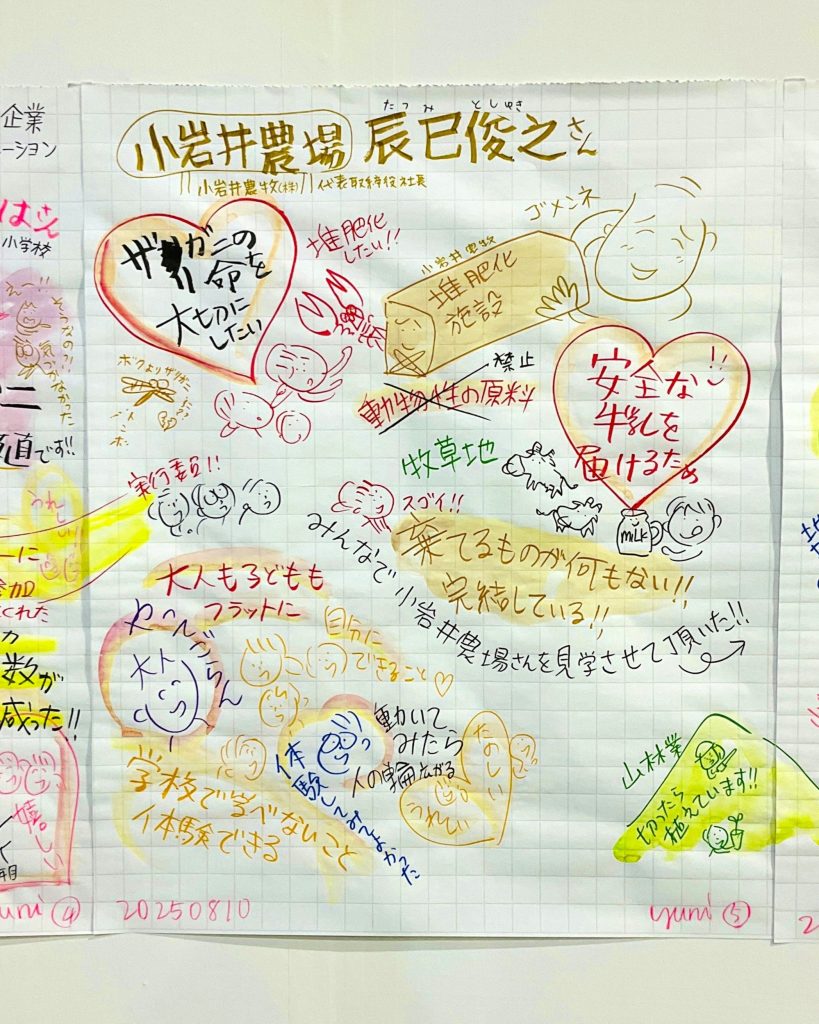 企業
ーション
小学校
えー!!
そうなの?!
気づかなかった
道です!!
うれしい
ーに
参加
くれた
数が
減った!!
嬉しい
yumi ④
たつみ としゆき
小岩井農場 辰巳俊之さん
小岩井農牧(株) 代表取締役社長
ザリガニの
命を
大切に
したい
堆肥化
したい!!
ゴメンネ
小岩井農牧
堆肥化
施設
禁止
動物性の原料
安全な
牛乳を
届けるため
!!
ボクよりザリガニ
牧草地
milk
実行委員!!
スゴイ!!
棄てるものが何もない!!
完結している!!
みんなで小岩井農場さんを見学させて頂いた!!
大人も子どもも
フラットに
大人
自分に
できること♡
体験してみてよかった
動いて
みたら
人の輪広がる
たのしい
うれしい
学校で学べないこと
体験できる
山林業
切ったら
植えています!!
20250810
yumi ⑤